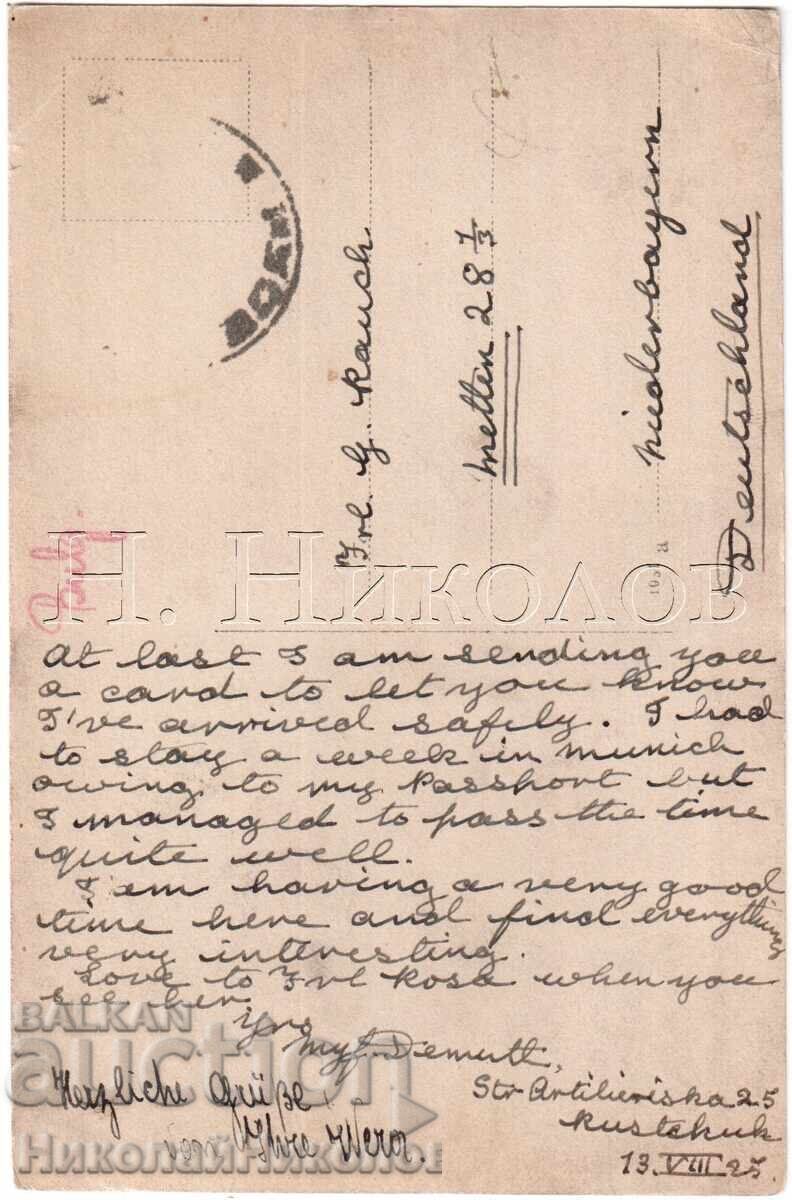 Frl. G. Rauch
Metten 28 1/3
Niederbayern
Deutschland
Н. Николов
At last I am sending you
a card to let you know
I've arrived safely. I had
to stay a week in Munich
owing to my Passport but
I managed to pass the time
quite well.
I am having a very good
time here and find everything
very interesting.
Love to Frl Rosa when you
see her
Yrs
Demuth,
Str Artilieriska 25
Rustchuk
13.VIII 25
Herzliche Grüße
von Ihre Wera.
BALKAN
auction
НиколайНиколов